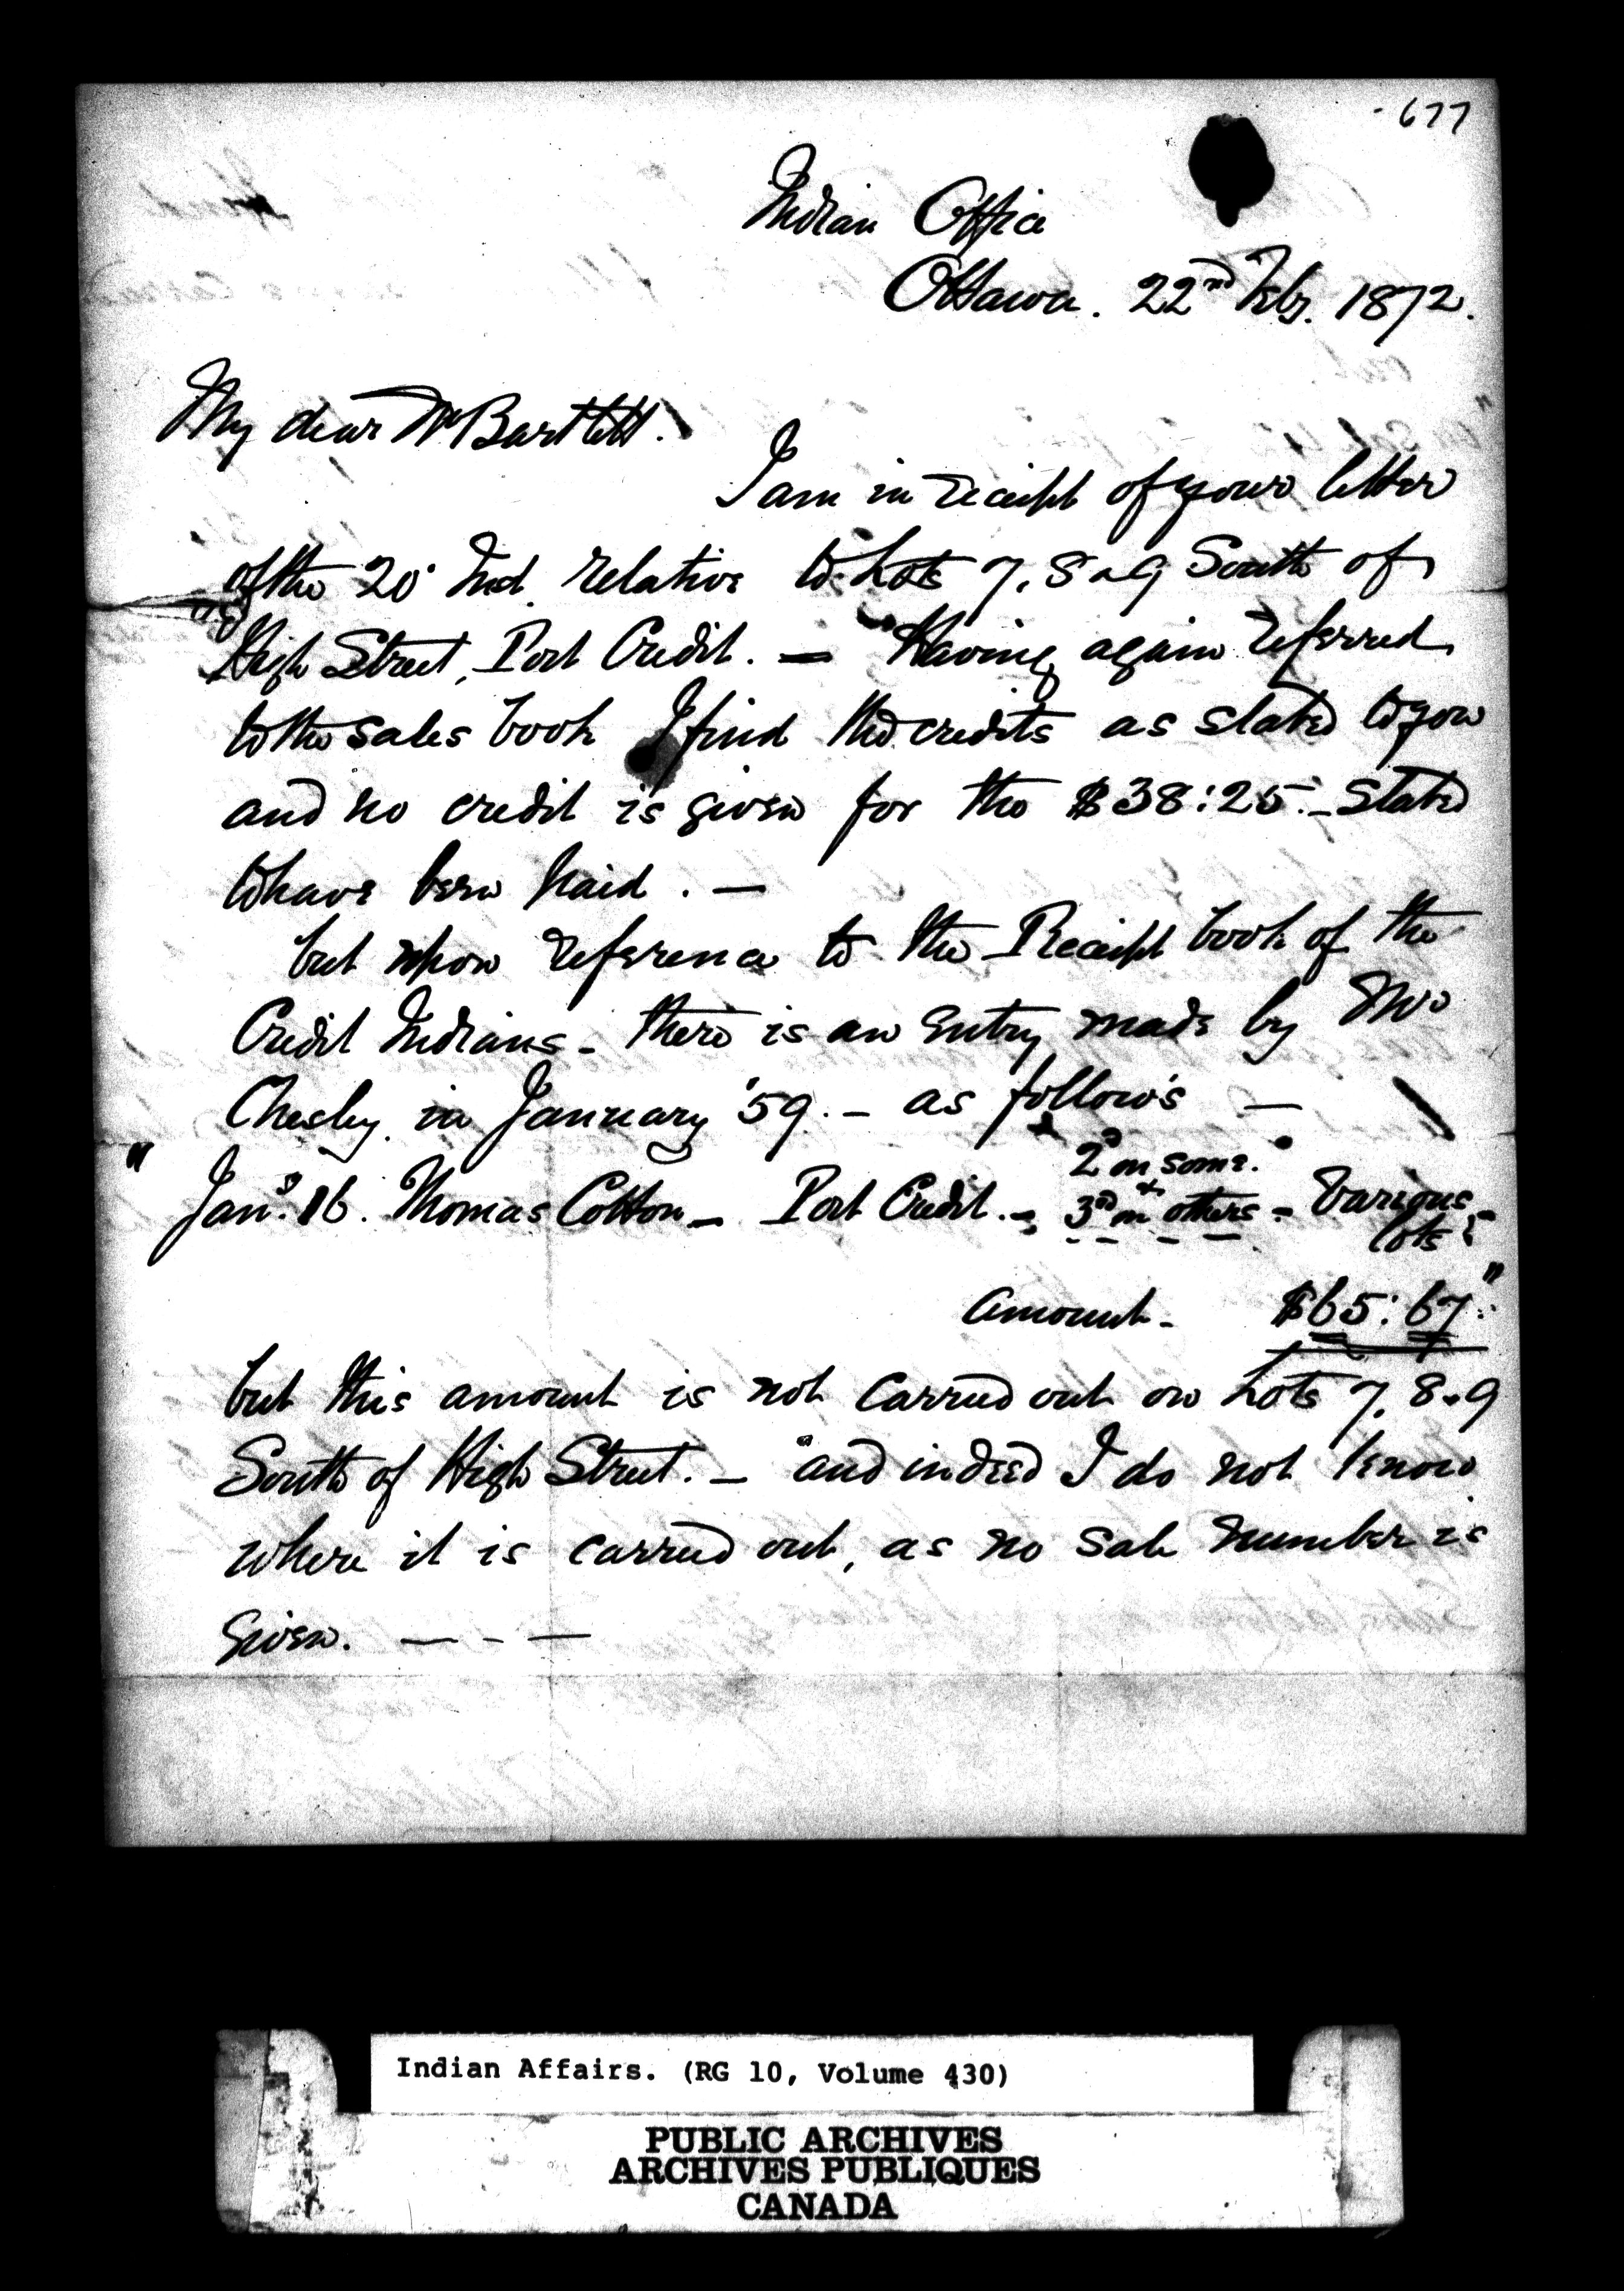 677
Indian Office
Ottawa. 22nd Feby. 1872.
My dear Mr Bartlett.
I am in receipt of your letter
of the 20 Inst. relative to Lots 7, 8 & 9 South of
High Street, Port Credit. — Having again referred
to the sales book I find the credits as stated to you
and no credit is given for the $38:25 - stated
to have been paid. —
but upon reference to the Receipt book of the
Credit Indians - there is an entry made by Mr
Chesley in January '59. - as follows —
2d on some. &
" Jany. 16. Thomas Cotton - Port Credit. - 3rd on others - Various
lots
amount - $65:67"
but this amount is not carried out on Lots 7, 8 & 9
South of High Street. - and indeed I do not know
where it is carried out, as no sale number is
given. — - —
Indian Affairs. (RG 10, Volume 430)
PUBLIC ARCHIVES
ARCHIVES PUBLIQUES
CANADA